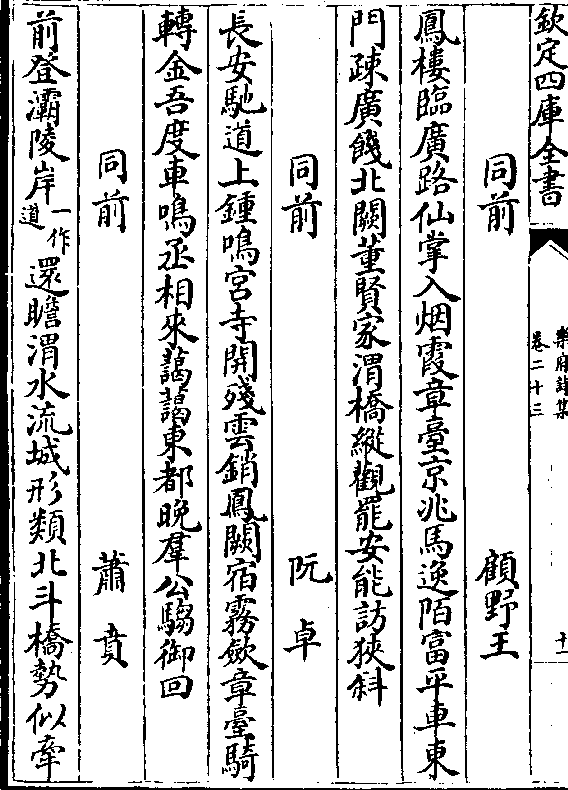 欽定四庫全書
樂府詩集
卷二十三
十一
同前　顧野王
鳳樓臨廣路仙掌入烟霞章臺京兆馬逸陌富平車東
門疎廣餞北闕董賢家渭橋縱觀罷安能訪狹斜
同前　阮卓
長安馳道上鍾鳴宮寺開殘雲銷鳳闕宿霧歛章臺騎
轉金吾度車鳴丞相來藹藹東都晚羣公騶御回
同前　蕭賁
前登灞陵岸一作道還瞻渭水流城形類北斗橋勢似牽